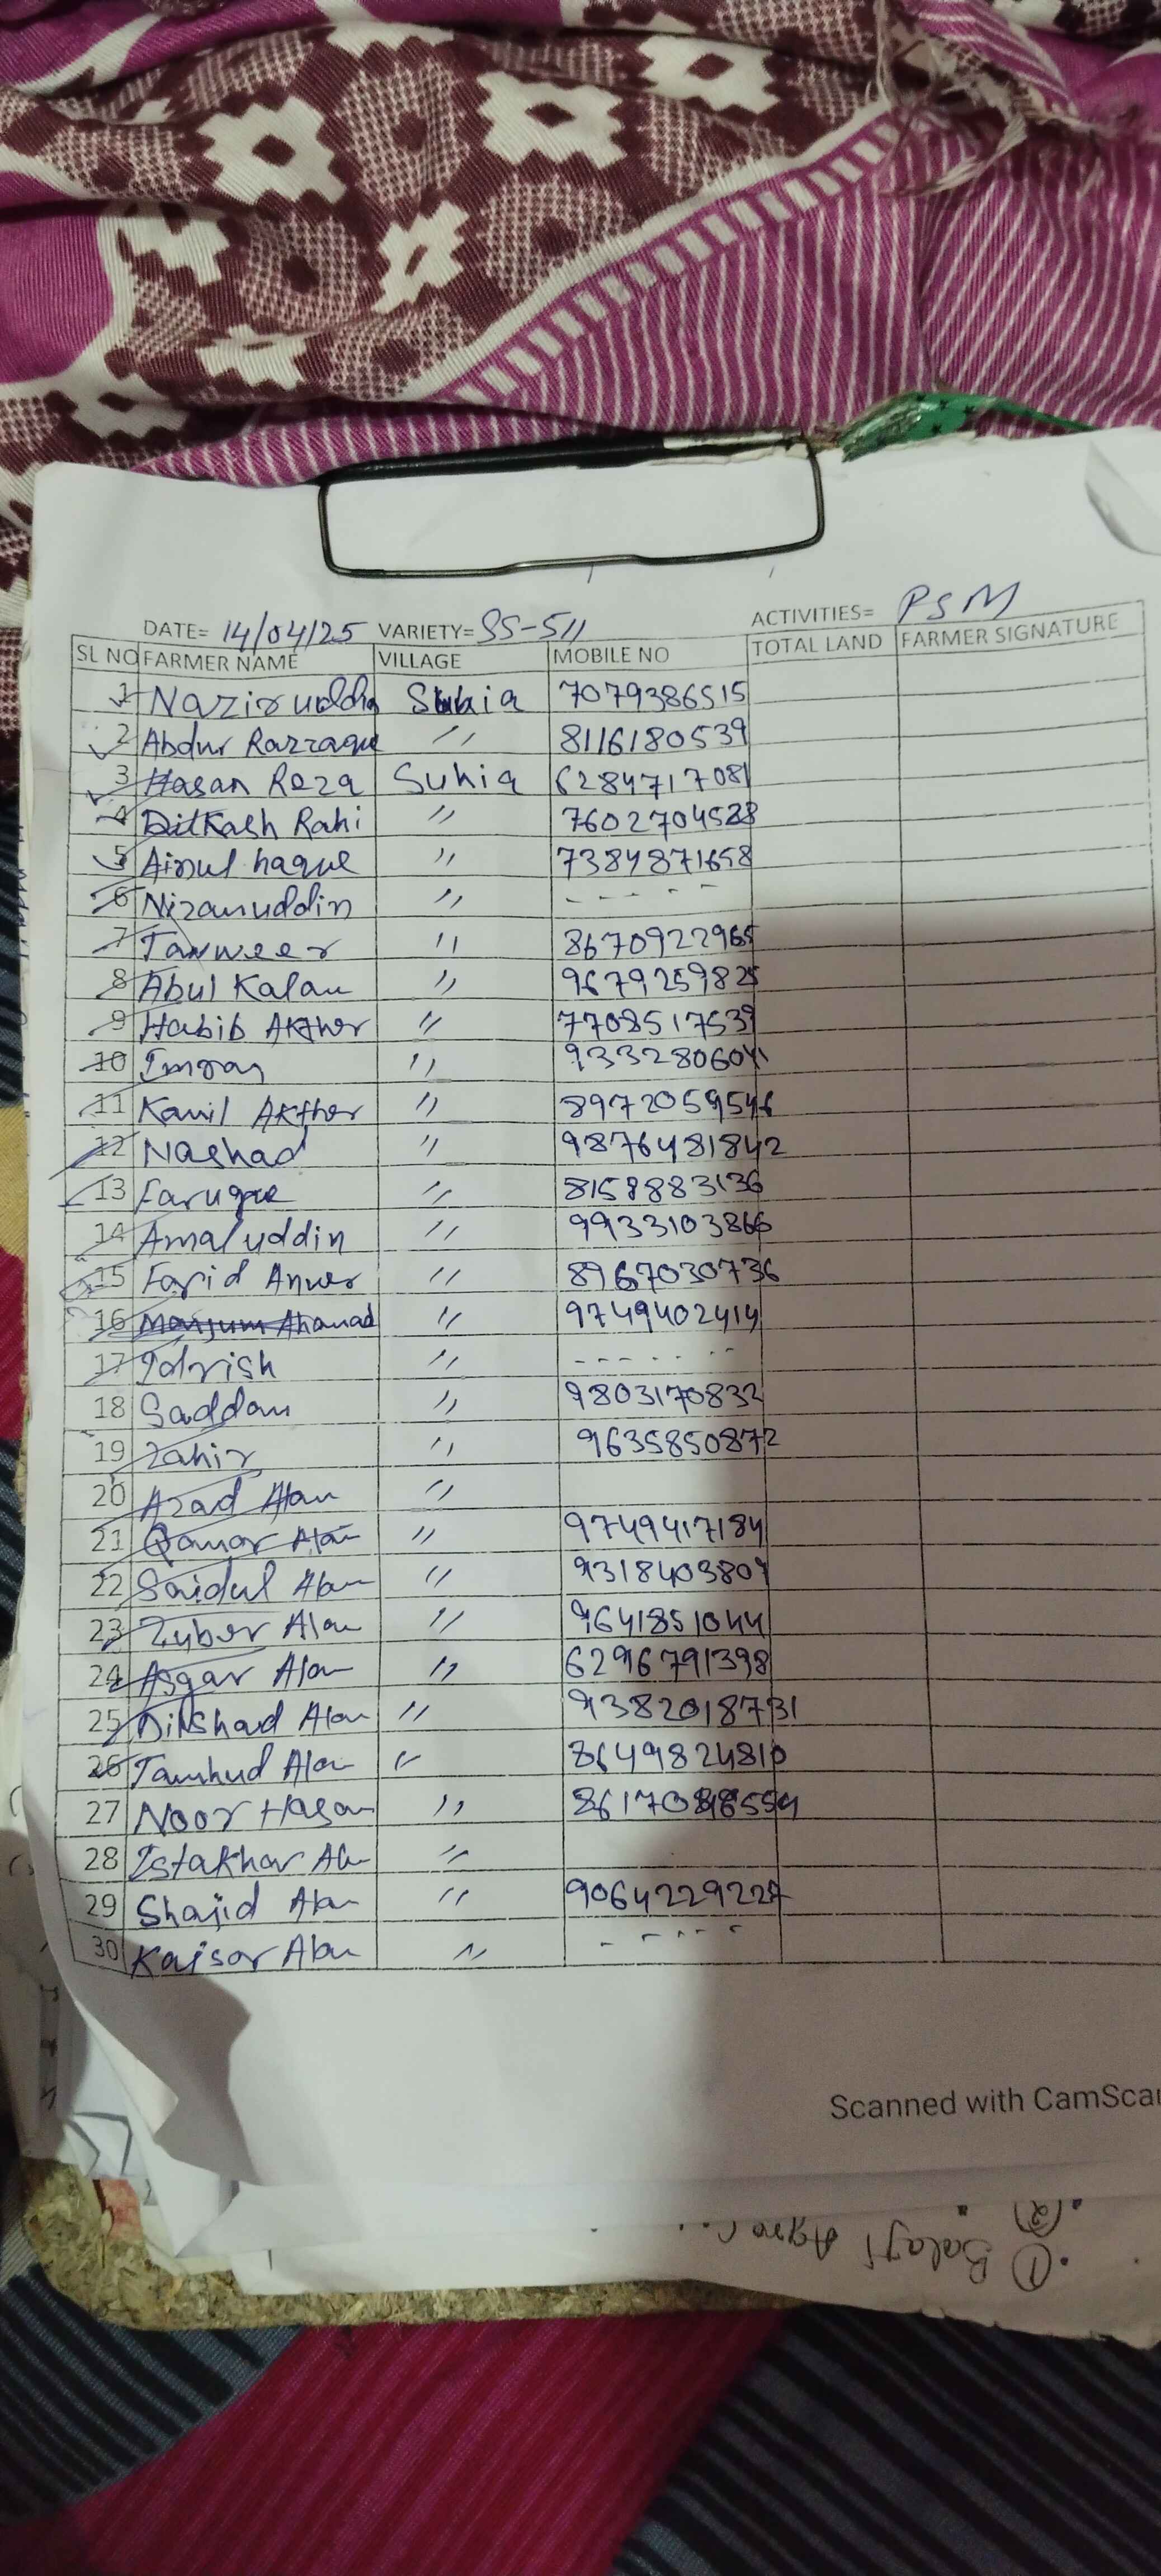 DATE= 14/04/25 VARIETY= SS-511 ACTIVITIES= PSM
SL NO FARMER NAME VILLAGE MOBILE NO TOTAL LAND FARMER SIGNATURE
1 Naziruddin Sukia 7079386515
2 Abdur Razzaque " 8116180539
3 Hasan Reza Sukia 6284717081
4 Ditkash Rahi " 7602704528
5 Ainul haque " 7384871658
6 Nizamuddin " - - - - -
7 Tanweer " 8670922965
8 Abul Kalam " 9679259825
9 Habib Akther " 7708517539
10 Imran " 9332806041
11 Kamil Akther " 8972059546
12 Nashad " 9876481842
13 Faruque " 8158883136
14 Amaluddin " 9933103866
15 Farid Anwer " 8967030736
16 Manjum Ahamad " 9749402414
17 Idrish " - - - - - -
18 Saddam " 9803170832
19 Zahir " 9635850872
20 Azad Alam "
21 Qamar Alam " 9749417184
22 Saidul Alam " 9318403809
23 Zuber Alam " 9641851044
24 Asgar Alam " 6296791398
25 Dilshad Alam " 9382018731
26 Tamhud Alam " 8649824810
27 Noor Hasan "
28 Istakhar Alam "
29 Shajid Alam " 9064229227
30 Kaisar Alam " - - - - -
Scanned with CamScan
① Balaji Agro
②